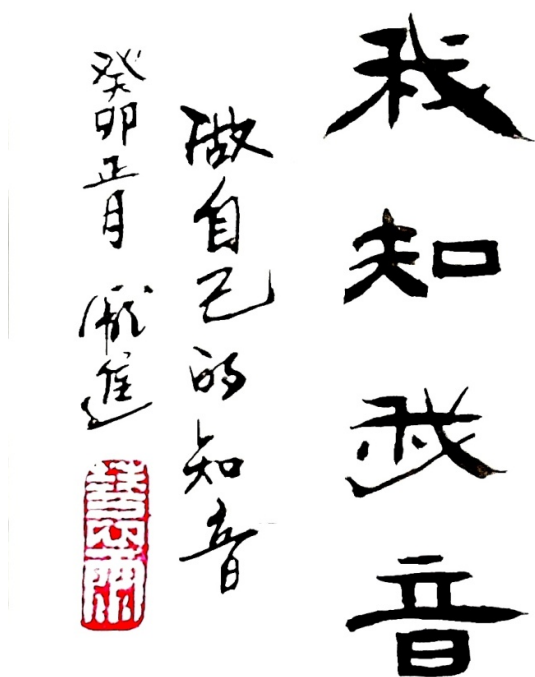 我知我音
做自己的知音
癸卯正月 龐進